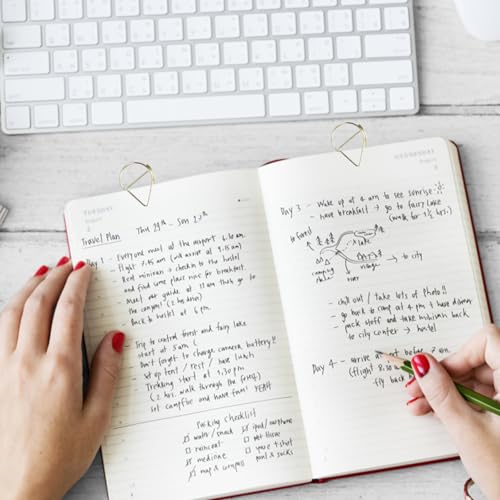 TUESDAY
Travel Plan Thu 29th - Sun 12th
Day 1 - Everyone meet at the airport 6.10 am
- flight 7.45 am (will arrive at 9.15 am)
- Rent minivan & checkin to the hostel
and find some place nice for breakfast.
- Meet our guide at 11 am then go to
the canyons! (2 hrs drive)
- Back to hostel at 6 pm
- Trip to control forest and fairy lake
start at 5 am (
- Don't forget to charge camera, battery!!
- Set up tent / rest / have lunch
- Trekking start at 3.30 pm
(2 hrs. walk through the forest)
- set campfire and have fun!!
Packing Checklist
water / snack
raincoat
medicine
map & compass
ipod / earphone
wet tissue
pant & socks
WEDNESDAY
Day 3 - Wake up at 4 am to see sunrise!!
- have breakfast → go to fairy lake
(walk for 1 1/2 hrs.)
to forest
lake
camping
village
→ to city
- chill out / take lots of photo!!
- go back to camp at 4 pm & have dinner
- pack stuff and take minivan back
to city center → hostel
Day 4 - arrive
(flight
fly back